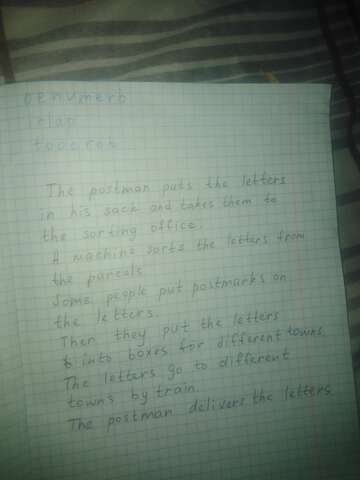 The postman puts the letters
in his sack and takes them to
the sorting office.
A machine sorts the letters from
the parcels
Some people put postmarks on
the letters.
Then they put the letters
into boxes for different towns.
The letters go to different
towns by train.
The postman delivers the letters